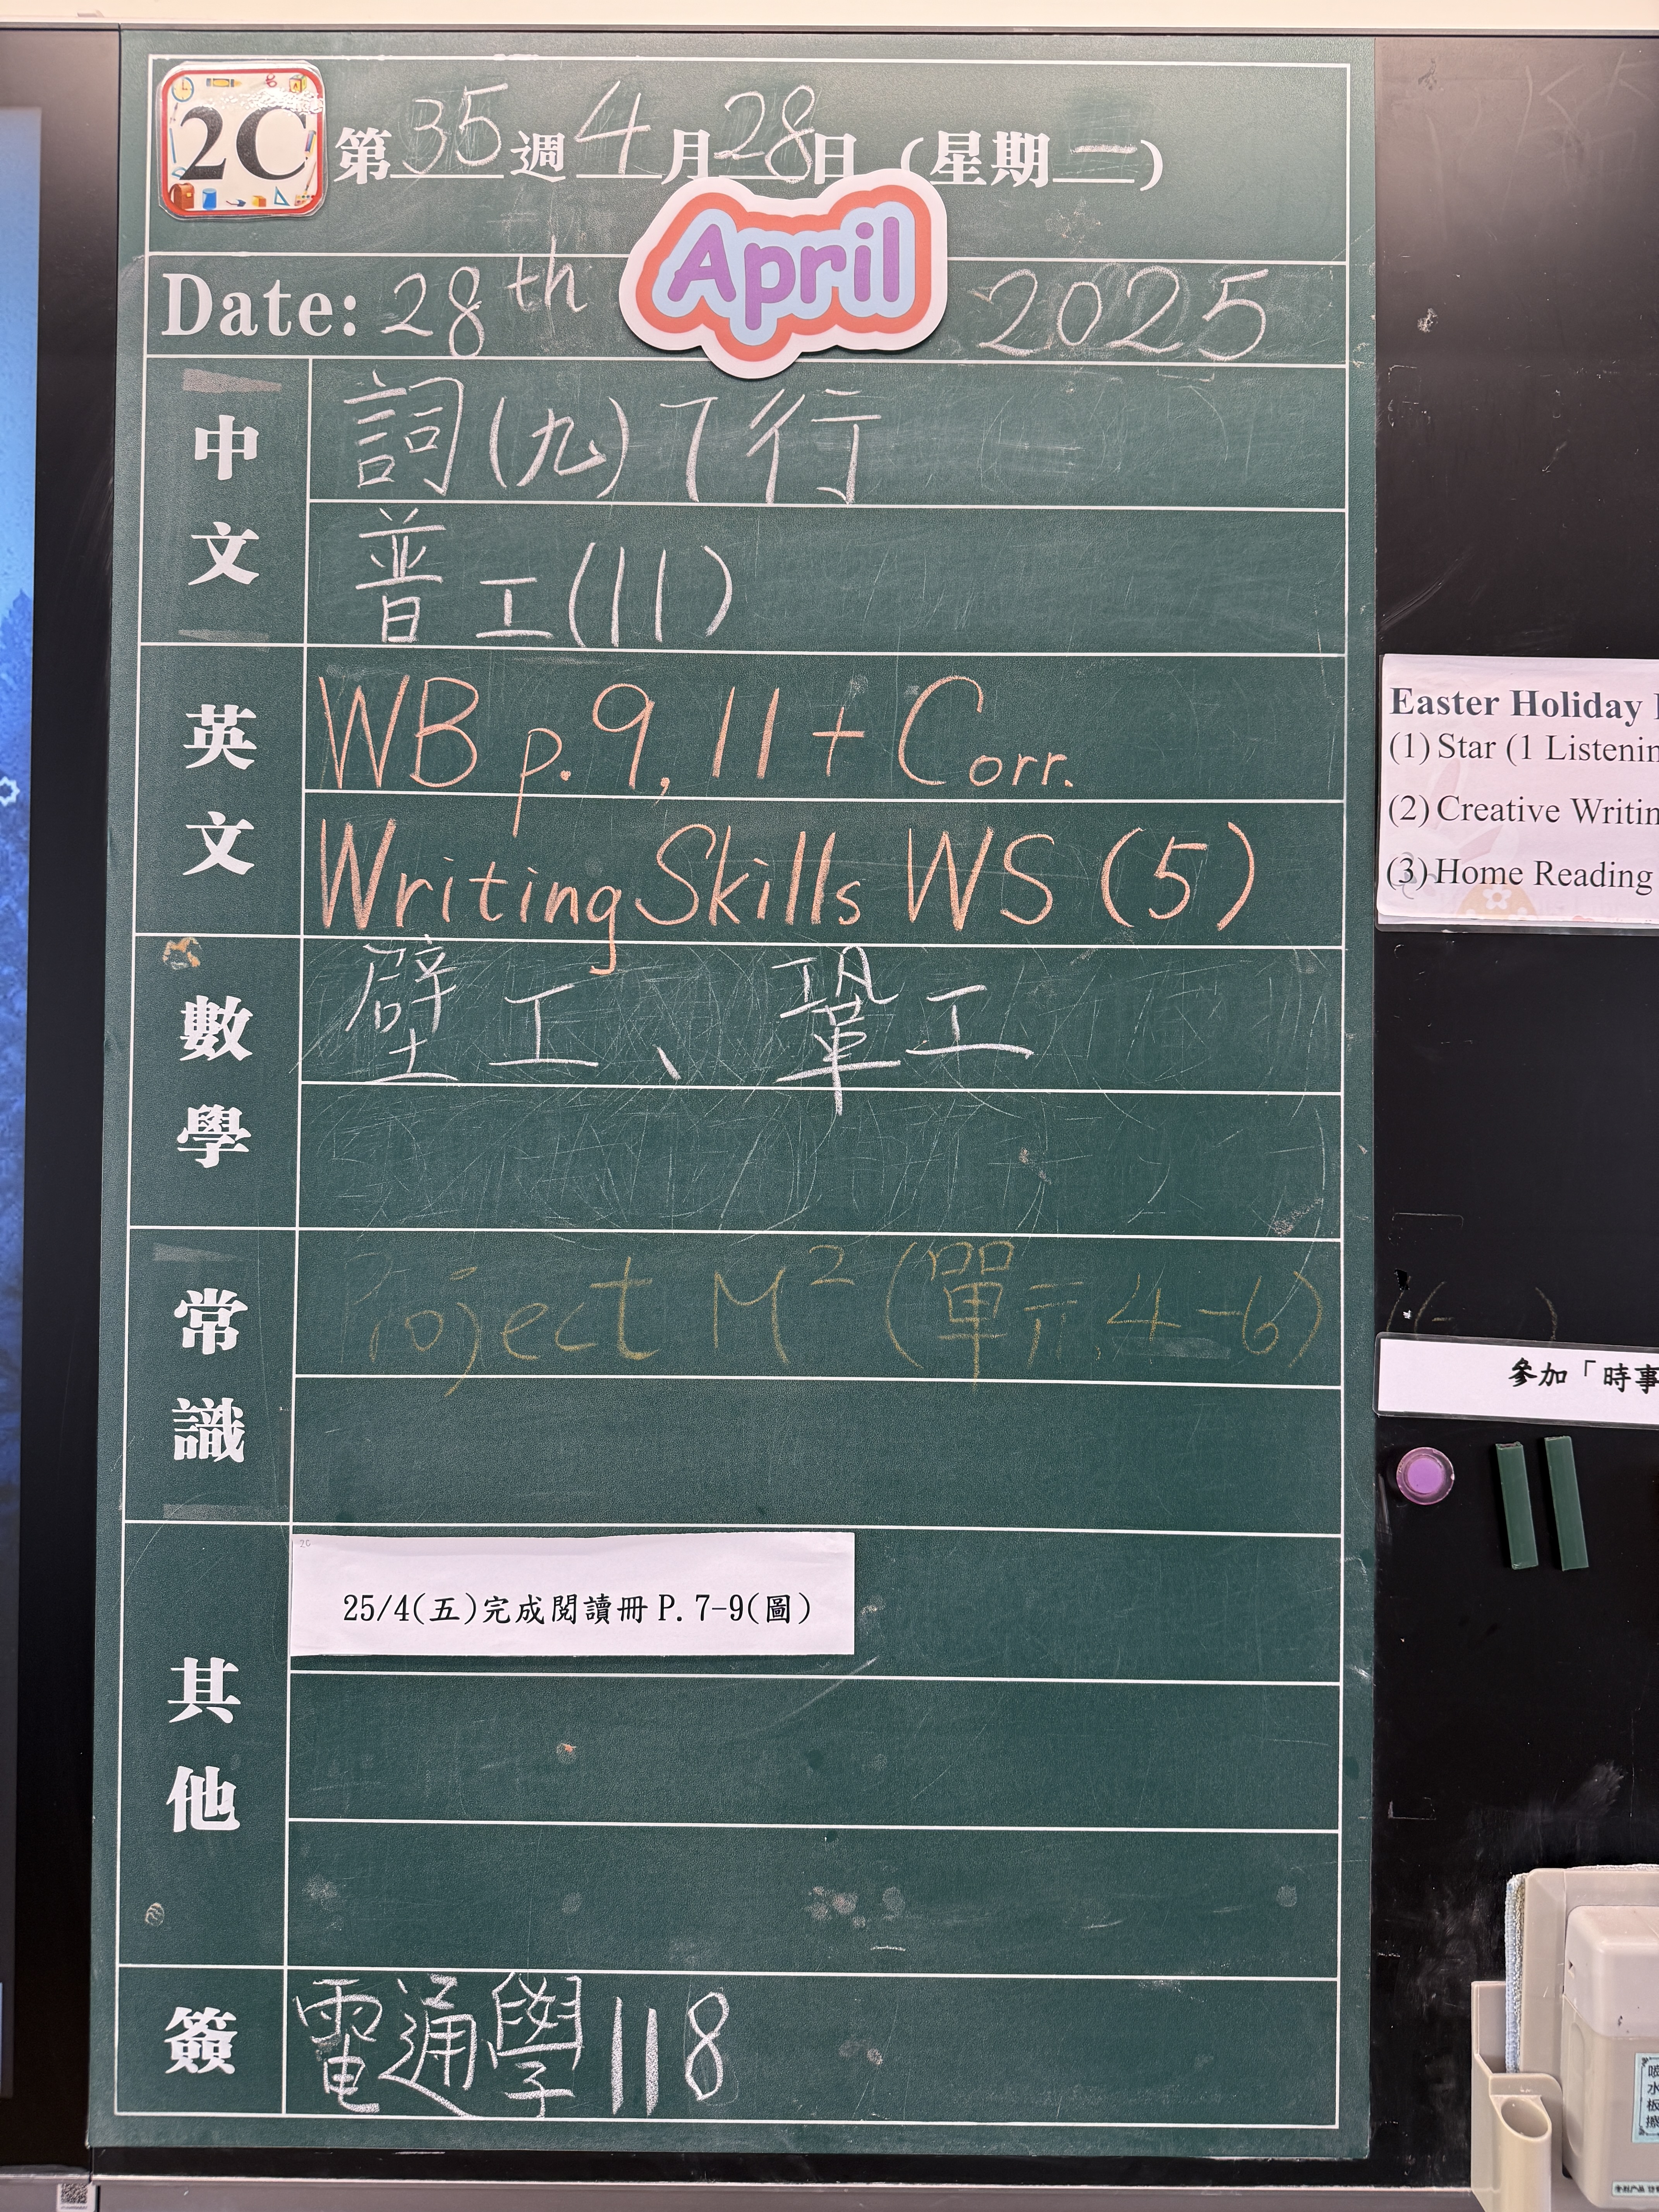 2C
第35週4月28日(星期一)
April
Date: 28th 2025
中文
詞(九)7行
普工(11)
英文
WB p.9, 11 + Corr.
Writing Skills WS (5)
數學
壁工、鞏工
常識
Project M² (單元4-6)
其他
2C
25/4(五)完成閱讀冊P.7-9(圖)
簽
電通學118
Easter Holiday
(1) Star (1 Listenin
(2) Creative Writin
(3) Home Reading
參加「時事